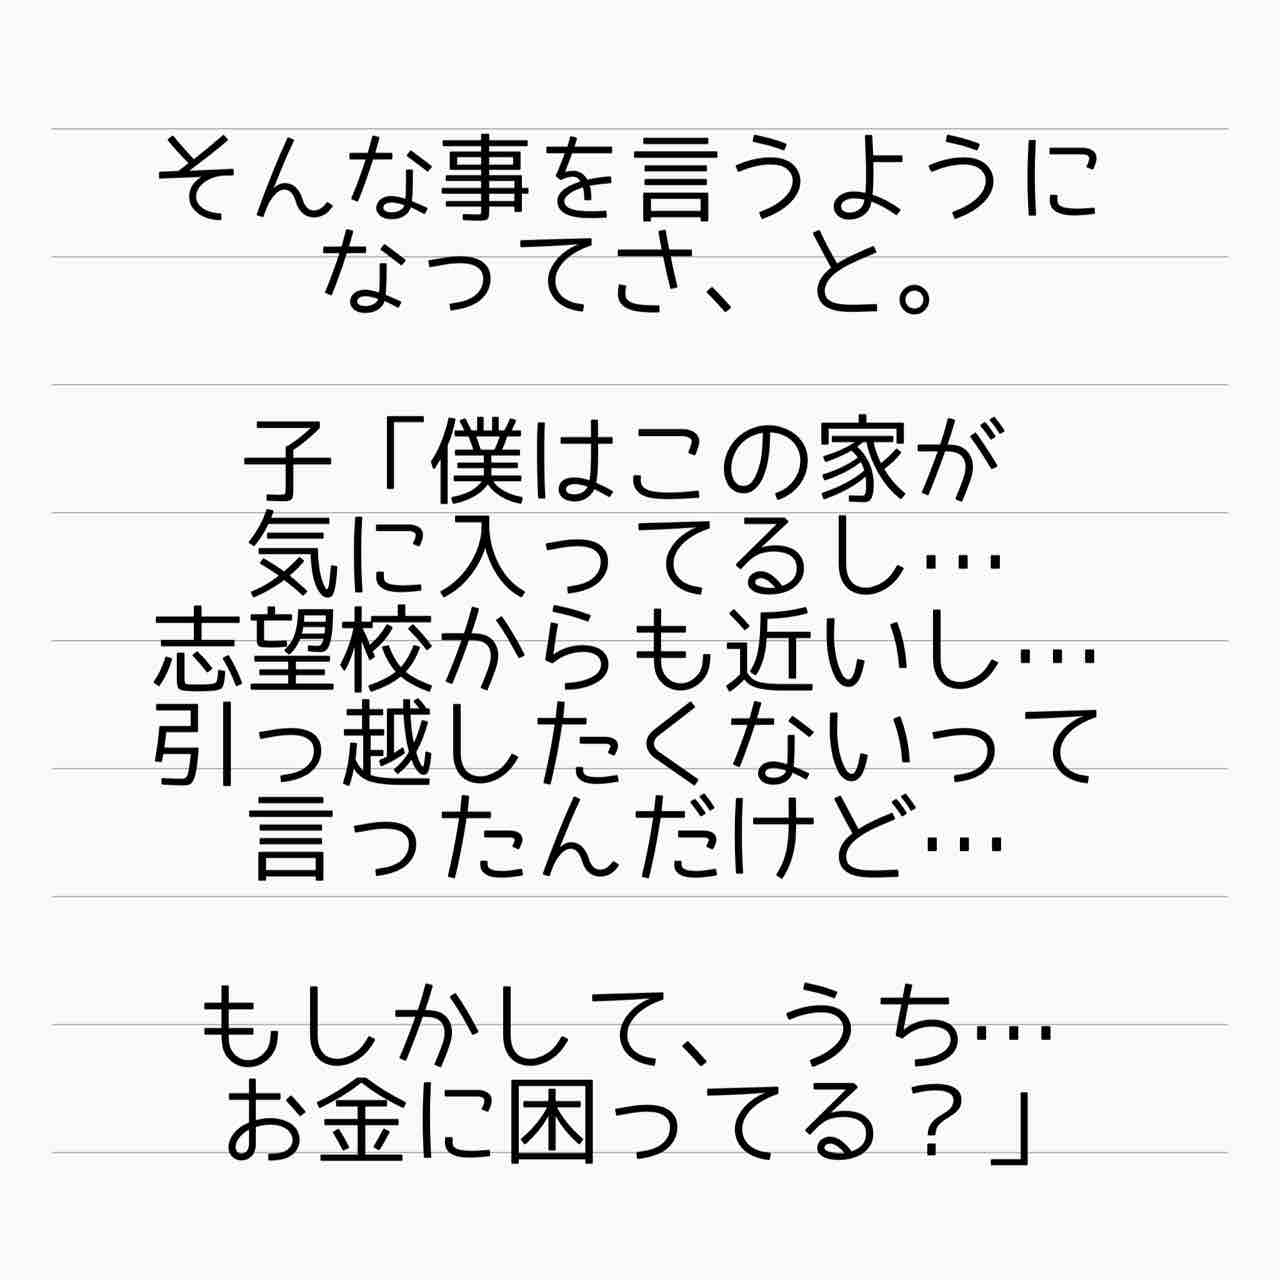 そんな事を言うように
なってさ、と。
子「僕はこの家が
気に入ってるし…
志望校からも近いし…
引っ越したくないって
言ったんだけど…
もしかして、うち…
お金に困ってる？」